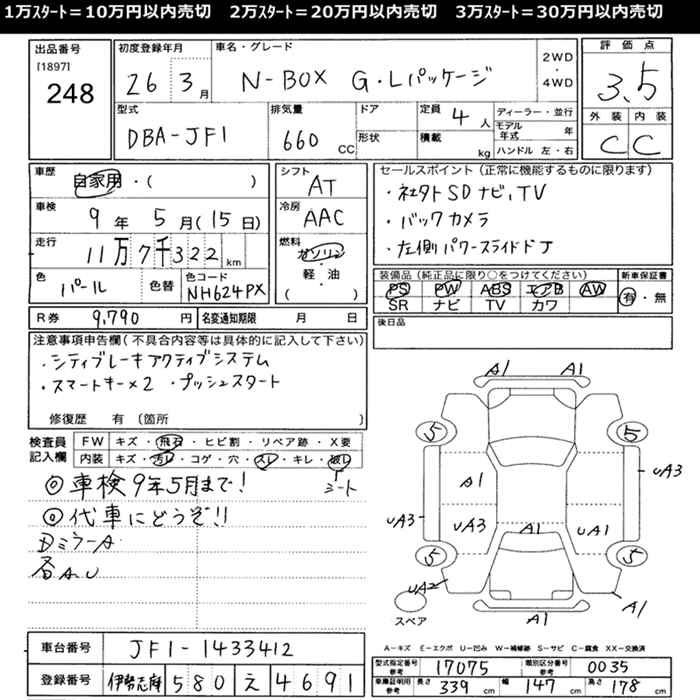 1万ｽﾀｰﾄ＝10万円以内売切　2万ｽﾀｰﾄ＝20万円以内売切　3万ｽﾀｰﾄ＝30万円以内売切
出品番号
[1897]
248
初度登録年月
26 3月
車名・グレード
N-BOX G・Lパッケージ
2WD・4WD
評価点
3.5
型式
DBA-JF1
排気量
660 CC
ドア
形状
定員 4 人
積載 kg
ディーラー・並行
モデル年式 年
ハンドル 左・右
外装 内装
C C
車歴
自家用・( )
車検
9年 5月(15日)
走行
11万7千322 km
色
パール
色替
色コード
NH624PX
シフト
AT
冷房
AAC
燃料
ガソリン
軽・油
( )
セールスポイント（正常に機能するものに限ります）
・社外SDナビ、TV
・バックカメラ
・左側パワースライドドア
装備品（純正品に限り○をつけてください）
PS PW ABS エアB AW
SR ナビ TV カワ
新車保証書
有・無
R券 9,790 円
名変通知期限 月 日
後日品
注意事項申告欄（不具合内容等は具体的に記入して下さい）
・シティブレーキアクティブシステム
・スマートキー×2 ・プッシュスタート
修復歴 有（箇所 ）
検査員記入欄
FW キズ・飛石・ヒビ割・リペア跡・X要
内装 キズ・汚レ・コゲ・穴・スレ・キレ・破レ
シート
◎車検9年5月まで！
◎代車にどうぞ!!
DミラーA
各A.U
A1 A1
5 5
A1
UA3
UA3 UA3 A1 UA1
5 5
UA2
A1
A1
スペア
A－キズ E－エクボ U－凹み W－補修跡 S－サビ C－腐食 XX－交換済
車台番号
JF1-1433412
登録番号
伊勢志摩 580 え 4691
型式指定番号参考
17075
類別区分番号参考
0035
車庫証明用参考
長さ 339 cm 幅 147 cm 高さ 178 cm